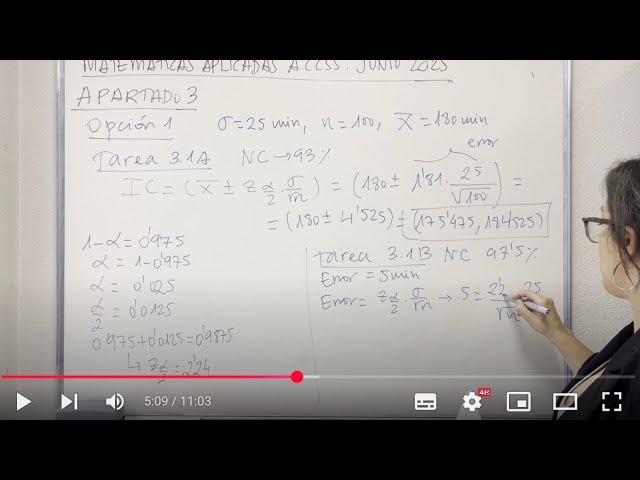 MATEMÁTICAS APLICADAS A CCSS. JUNIO 2025
APARTADO 3
Opción 1 σ=25 min, n=100, X̄=180min
Tarea 3.1A NC→93% error
IC = (X̄ ± Zα/2 · σ/√n) = (180 ± 1'81 · 25/√100) =
= (180 ± 4'525) = (175'475, 184'525)
1-α=0'975
α = 1-0'975
α = 0'025
α/2 = 0'0125
0'975+0'0125=0'9875
↳ Zα/2=2'24
tarea 3.1B NC 97'5%
Error = 5min
Error = Zα/2 · σ/√n → 5 = 2'2 25/√n
5:09 / 11:03
4K